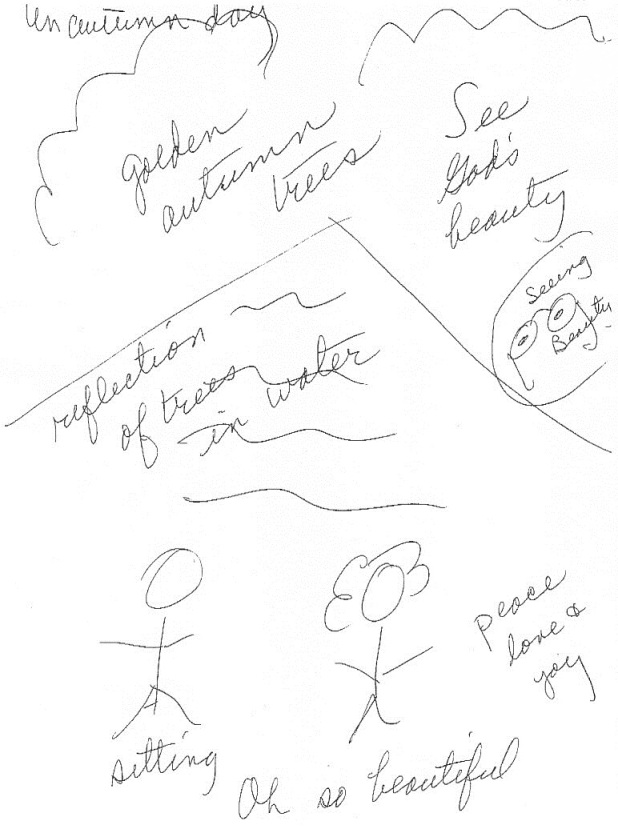 autumn day
golden
autumn
trees
See
God's
beauty
Seeing
Beauty
reflection
of trees
in water
peace
love &
joy
sitting
Oh so beautiful